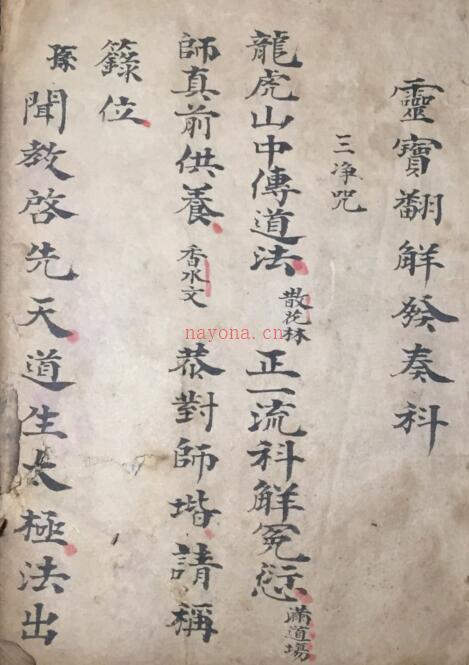 靈寶翻解發奏科
三净咒
龍虎山中傳道法 散花林 正一流科解冤愆 滿道場
師真前供養 香水文 恭對師堦請稱
籙位
聞教啓先天道生太極法出
nayona.cn